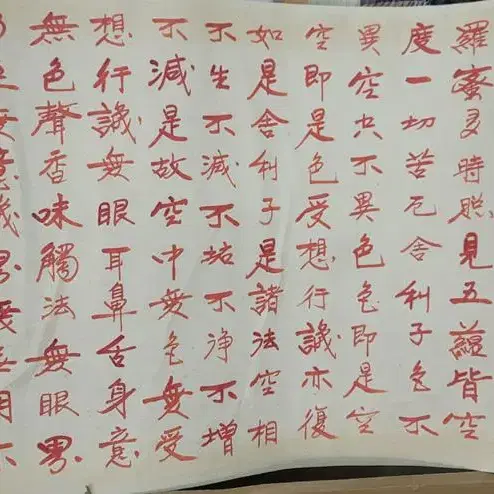 羅蜜多時照見五蘊皆空
度一切苦厄舍利子色不
異空空不異色色即是空
空即是色受想行識亦復
如是舍利子是諸法空相
不生不滅不垢不淨不增
不減是故空中無色無受
想行識無眼耳鼻舌身意
無色聲香味觸法無眼界
無意識界無無明